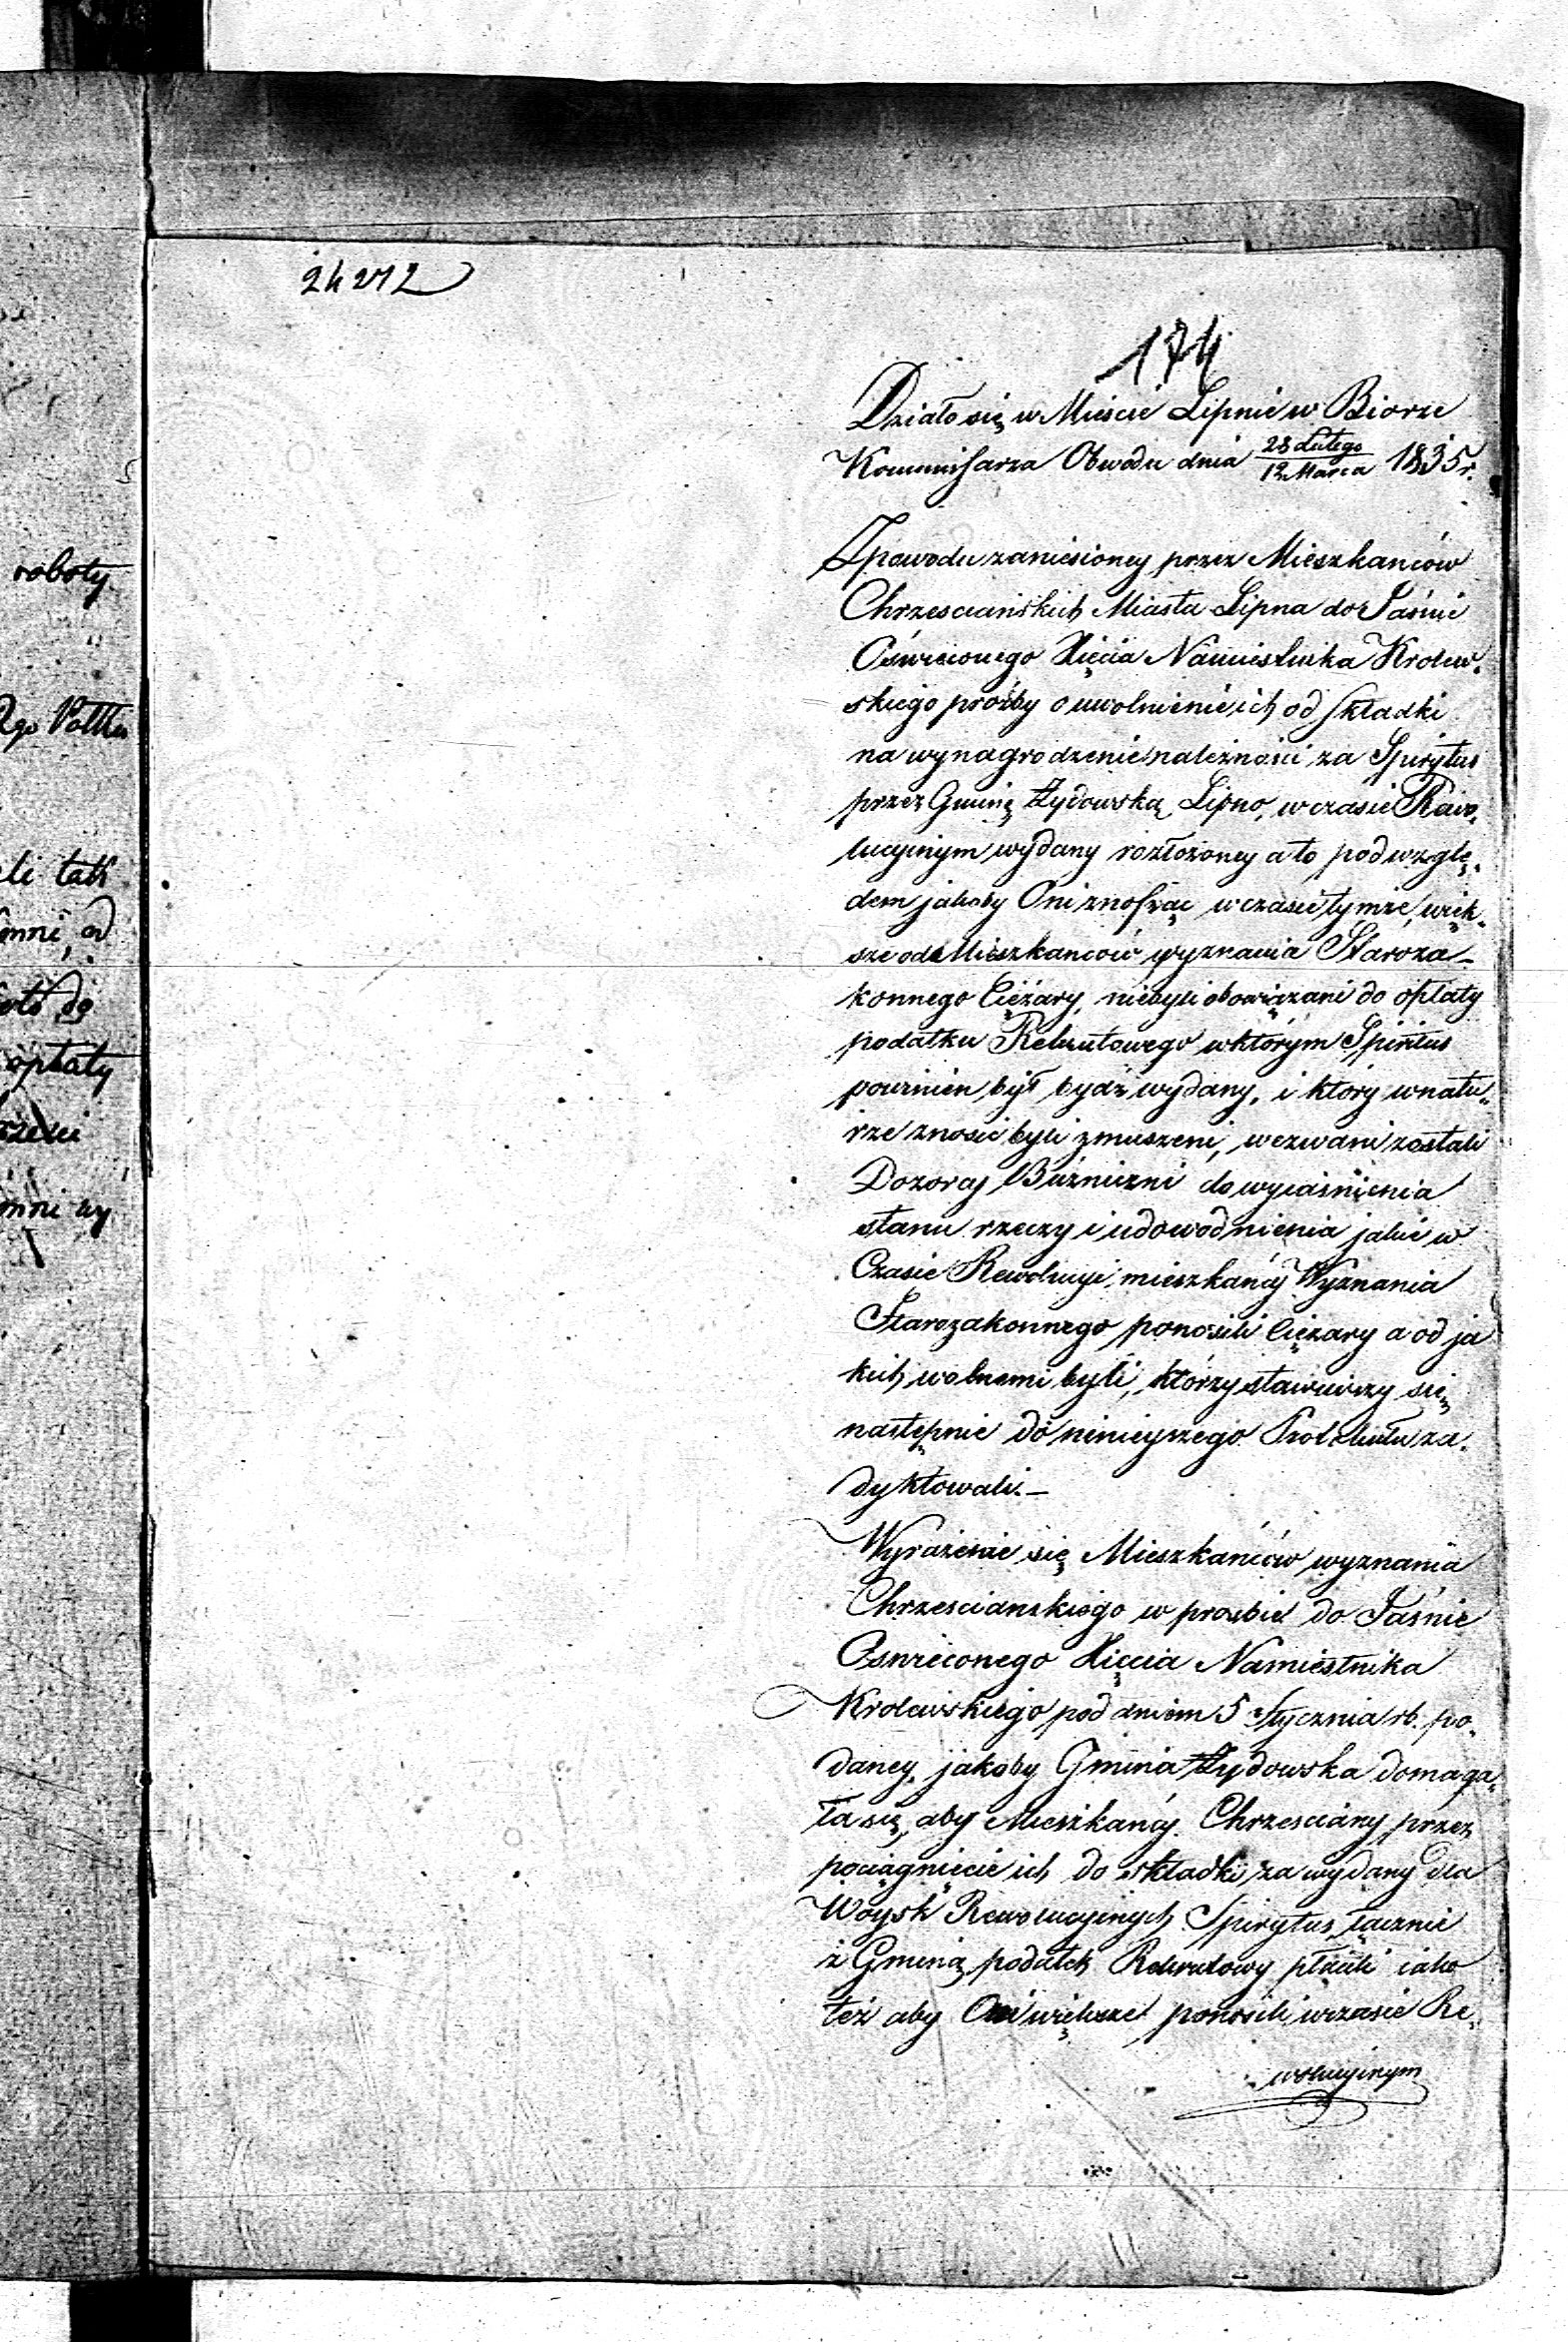 roboty
li tak
opłaty
24272
174
Działo się w Mieście Lipnie w Biorze
Kommissarza Obwodu dnia 28 Lutego / 12 Marca 1835 r.
Zpowodu zaniesioney przez Mieszkanców
Chrzesciańskich Miasta Lipna do Jaśnie
Oświeconego Xięcia Namiestnika Krolew„
skiego prożby o uwolnienie ich od składki
na wynagrodzenie należności za Spirytus
przez Gminę Żydowską Lipno, w czasie Rewo„
lucyinym wydany rozłożoney a to pod wzglę„
dem jakoby Oni znosząc w czasie tymże więk„
sze od Mieszkancow wyznania Staroza-
konnego Ciężary, niebyli obowiązani do opłaty
podatku Rekrutowego w którym Spiritus
powinien był bydź wydany, i który w natu„
rze znosić byli zmuszeni, wezwani zostali
Dozorcy Bużniczni do wyiaśnienia
stanu rzeczy i udowodnienia jakie w
Czasie Rewolucyi mieszkańcy Wyznania
Starozakonnego ponosili Ciężary a od ja
kich wolnemi byli, którzy stawiwszy się
następnie do ninieyszego Protokułu za„
dyktowali.—
Wyrażenie się Mieszkańców wyznania
Chrzescianskiego w prozbie do Jaśnie
Oswieconego Xięcia Namiestnika
Krolewskiego pod dniem 5 Stycznia rb. po„
daney, jakoby Gmina Żydowska domaga„
ła się, aby Mieszkańcy Chrzesciany przez
pociągnięcie ich do składki za wydany dla
Woysk Rewolucyinych Spirytus łącznie
z Gminą podatek Rekrutowy płacili iako
też aby Oni większe ponosili w czasie Re„
wolucyinym